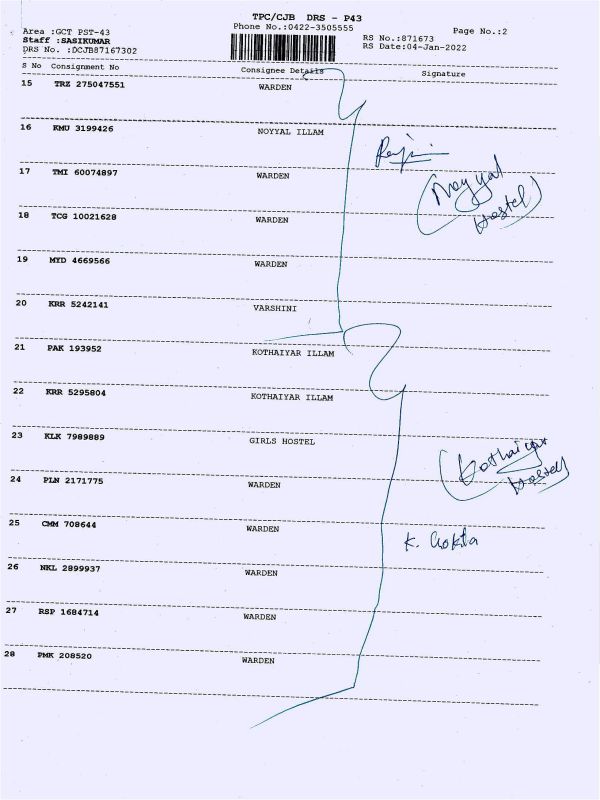 TPC/CJB DRS - P43
Area :GCT PST-43 Phone No.:0422-3505555 Page No.:2
Staff :SASIKUMAR RS No.:871673
DRS No. :DCJB87167302 RS Date:04-Jan-2022
S No Consignment No Consignee Details Signature
15 TRZ 275047551 WARDEN
16 KMU 3199426 NOYYAL ILLAM
17 TMI 60074897 WARDEN
(Noyyal
Hostel)
18 TCG 10021628 WARDEN
19 MYD 4669566 WARDEN
20 KRR 5242141 VARSHINI
21 PAK 193952 KOTHAIYAR ILLAM
22 KRR 5295804 KOTHAIYAR ILLAM
23 KLK 7989889 GIRLS HOSTEL
(Kothaiyar
Hostel)
24 PLN 2171775 WARDEN
25 CMM 708644 WARDEN
26 NKL 2899937 WARDEN
27 RSP 1684714 WARDEN
28 PMK 208520 WARDEN